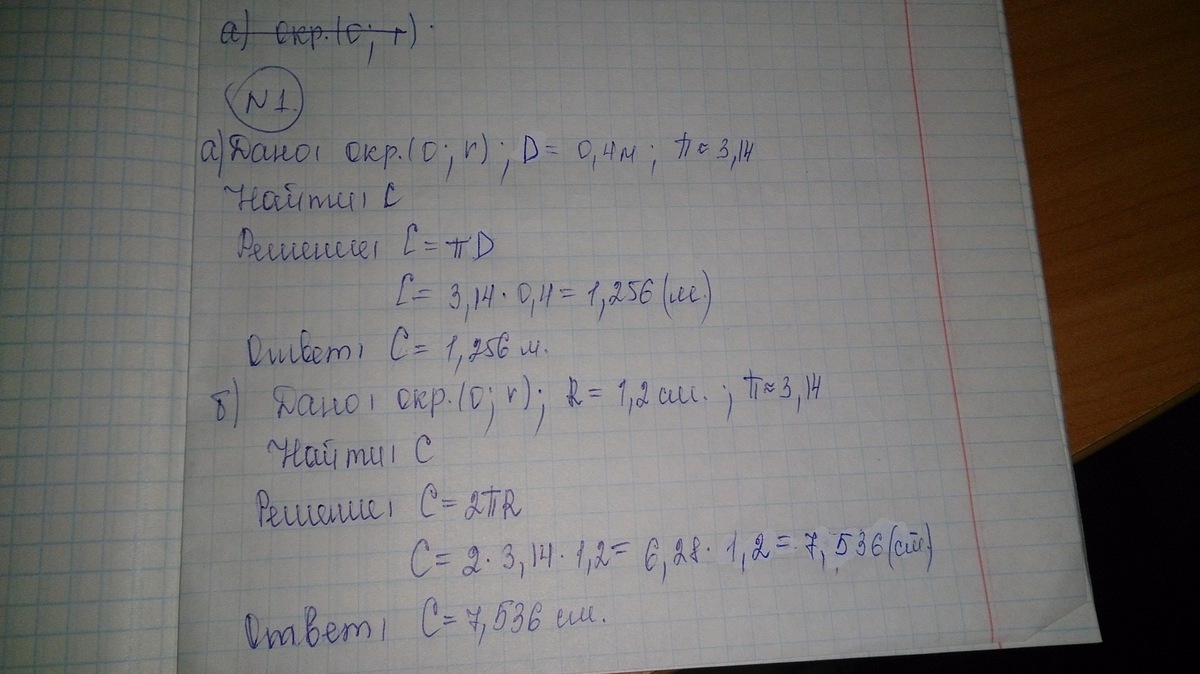 а) окр.(О; r).
N1.
а) Дано: окр.(О; r); D = 0,4м; π ≈ 3,14
Найти: C
Решение: C = πD
C = 3,14 · 0,4 = 1,256 (м.)
Ответ: C = 1,256 м.
б) Дано: окр.(О; r); R = 1,2 см.; π ≈ 3,14
Найти: C
Решение: C = 2πR
C = 2 · 3,14 · 1,2 = 6,28 · 1,2 = 7,536 (см)
Ответ: C = 7,536 см.